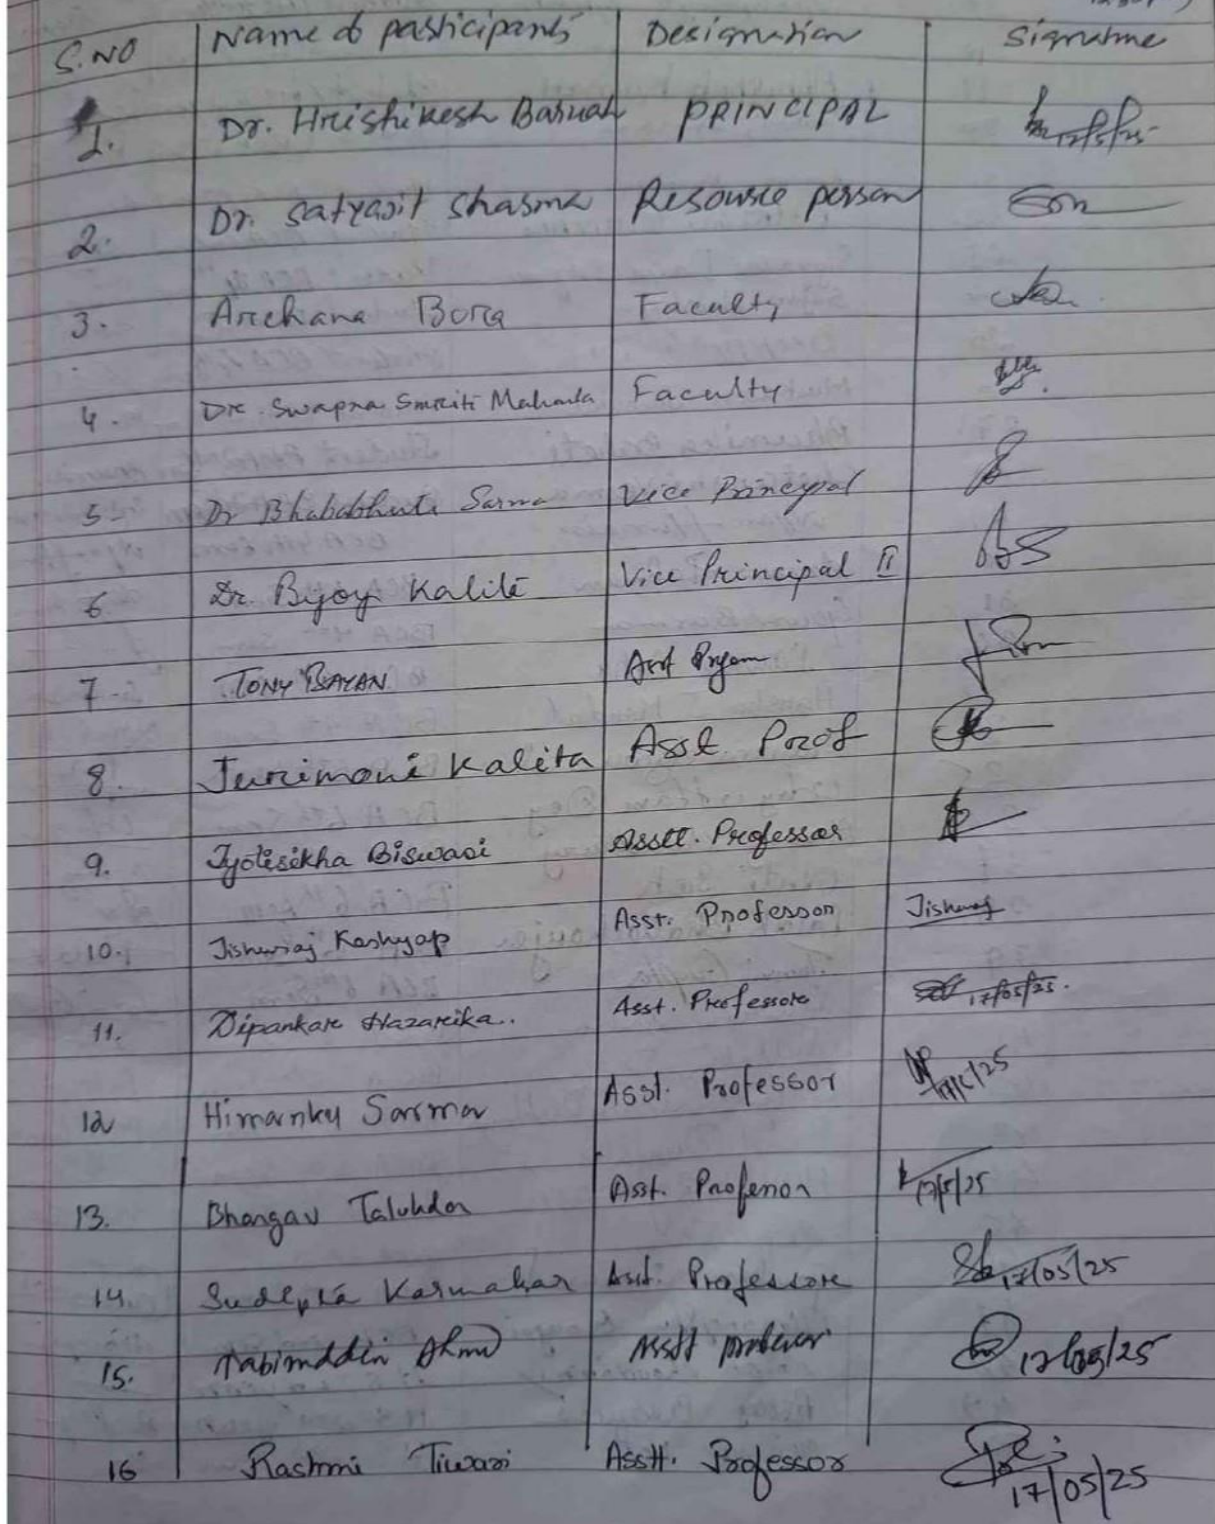 S.NO Name of participants Designation Signature
1. Dr. Hrishikesh Baruah PRINCIPAL 17/5/25
2. Dr. Satyajit Sharma Resource person
3. Archana Bora Faculty
4. Dr. Swapna Smriti Mahanta Faculty
5- Dr Bhababhuti Sarma Vice Principal
6 Dr. Bijoy Kalita Vice Principal II
7- TONY BAYAN Asst
8. Jurimoni Kalita Asst. Prof
9. Jyotisikha Biswasi Asstt. Professor
10. Jishnuraj Kashyap Asst. Professor Jishnuraj
11. Dipankar Hazarika.. Asst. Professor 17/05/25.
12 Himanku Sarma Asst. Professor
13. Bhargav Talukdar Asst. Professor 17/5/25
14. Sudipta Karmakar Asst. Professor 17/05/25
15. Asstt professor 17/05/25
16 Rashmi Tiwari Asstt. Professor 17/05/25